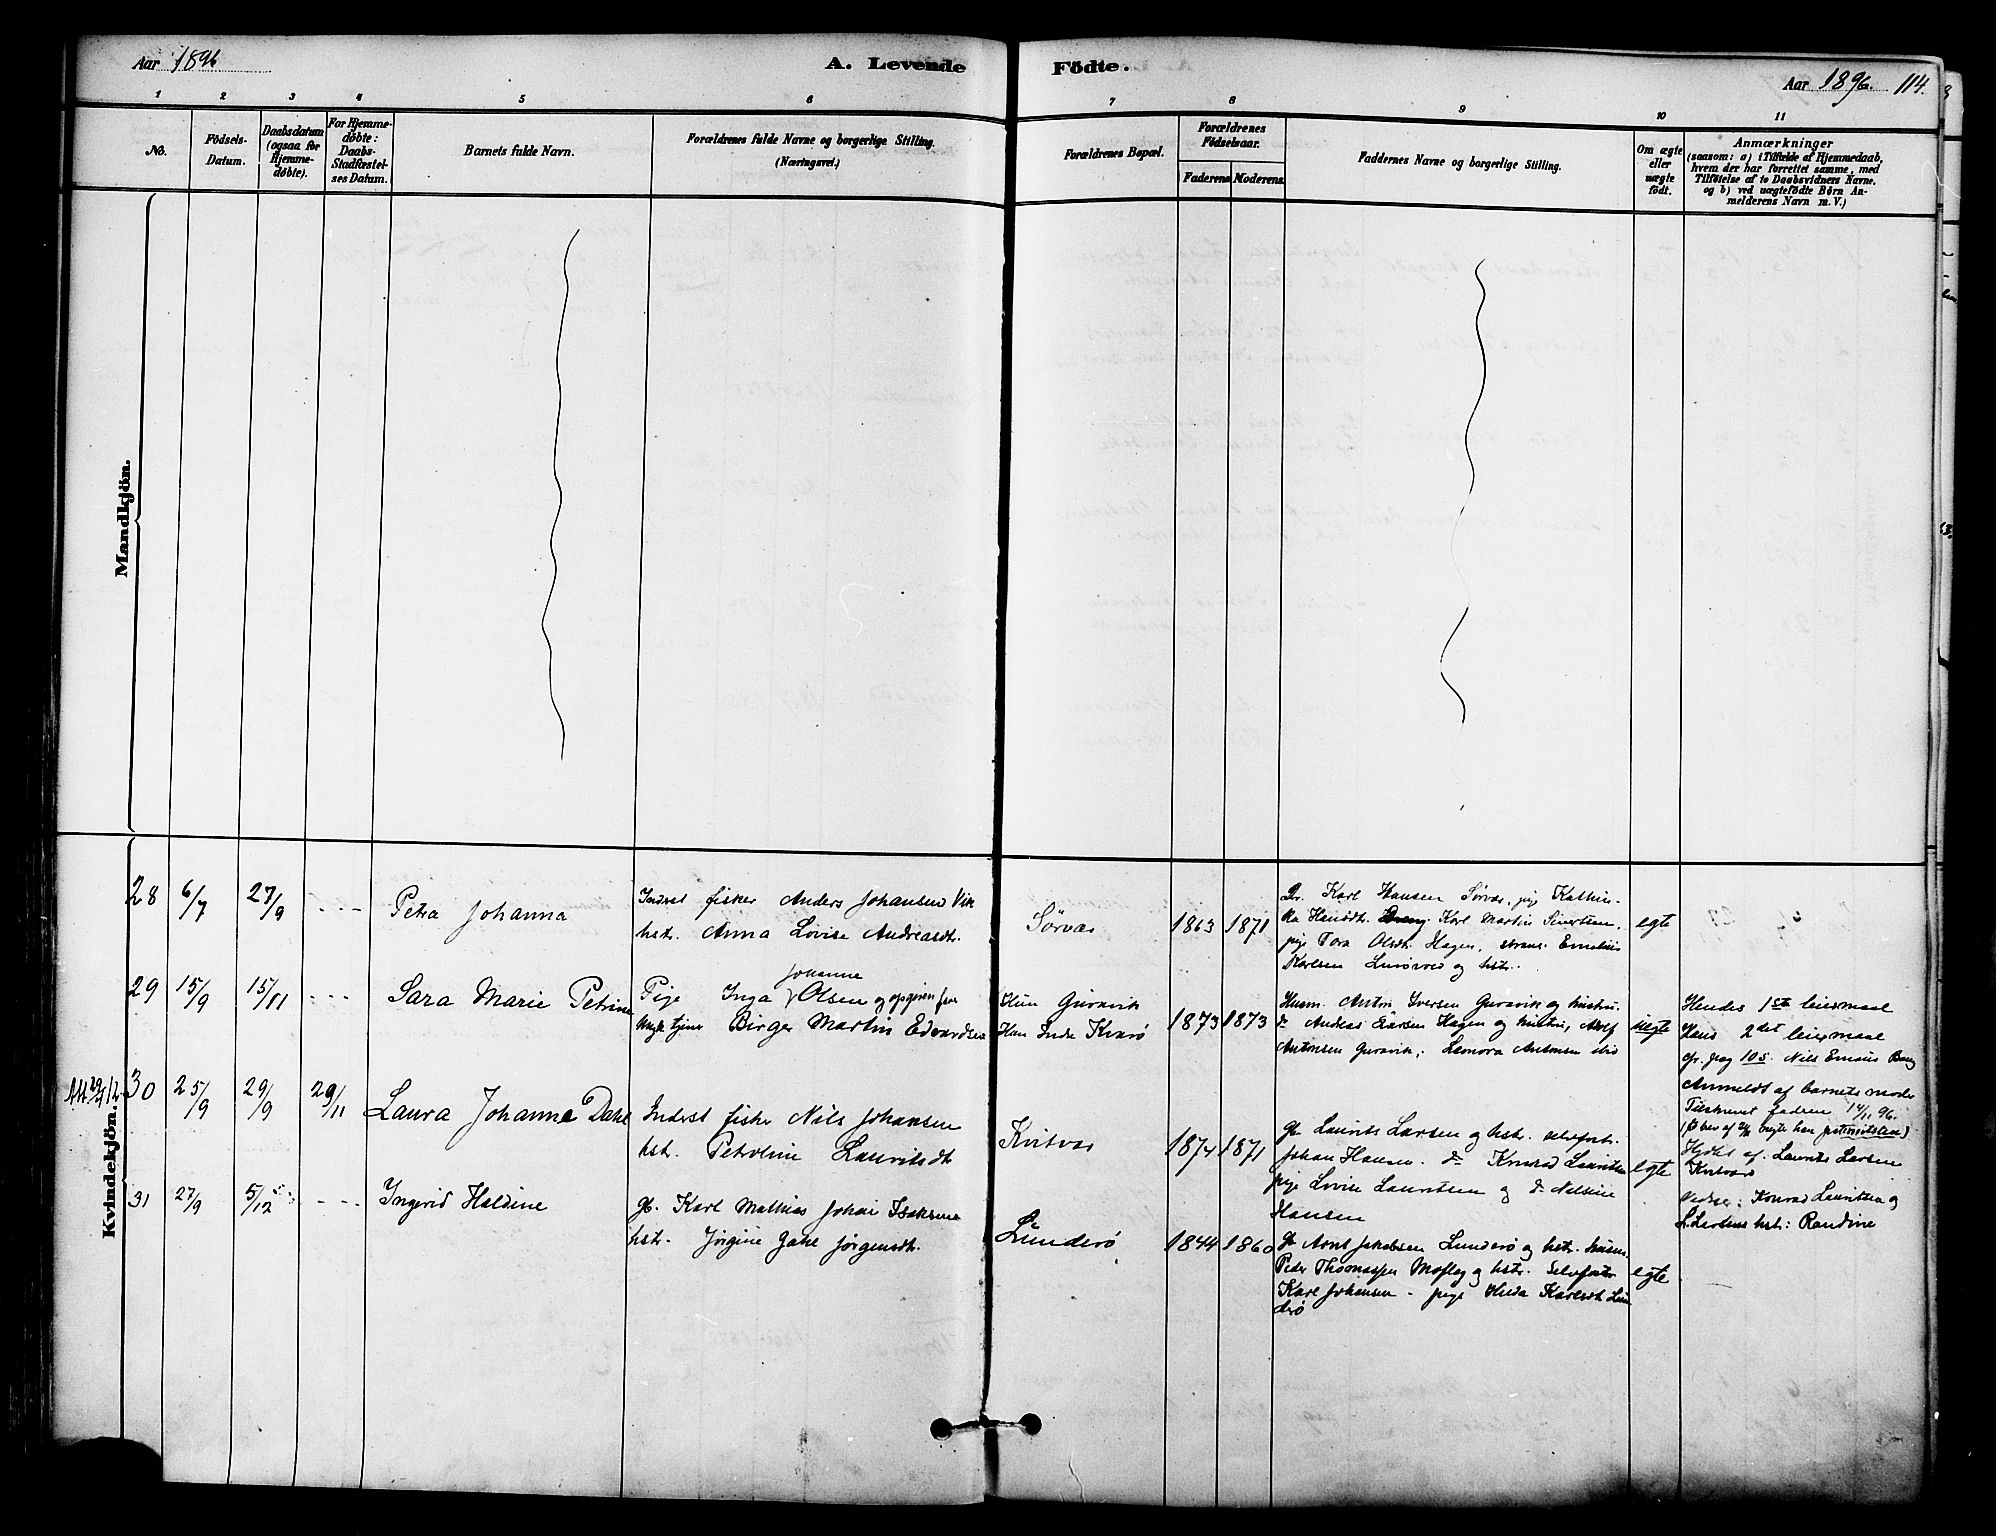 Aar 1896
A. Levende Födte.
Aar 1896. 114.
1 2 3 4 5 6 7 8 9 10 11
No.
Födsels-
Datum.
Daabsdatum
(ogsaa for
Hjemme-
döbte).
For Hjemme-
döbte:
Daabs-
Stadfæstel-
ses Datum.
Barnets fulde Navn.
Forældrenes fulde Navne og borgerlige Stilling.
(Næringsvei.)
Forældrenes Bopæl.
Forældrenes
Födselsaar.
Faderens Moderens
Faddernes Navne og borgerlige Stilling.
Om ægte
eller
uægte
födt.
Anmærkninger
(saasom: a) i Tilfælde af Hjemmedaab,
hvem der har forrettet samme, med
Tilföielse af to Daabsvidners Navne.
og b) ved uægtefödte Börn An-
melderens Navn m. V.)
Mandkjön.
Kvindekjön.
28 6/7 27/9 - - -
Petra Johanna
Inderst fisker Anders Johansen Vik
hstr. Anna Lovise Andreasdt.
Sörvær
1863 1871
Karl Hansen Sörvær, pige Kathin-
ka Hansdt. Karl Martin Sivertsen,
pige Tora Olsdt. Hagen, Emelius
Karlsen og hstr.
egte
29 15/9 15/11 - - -
Sara Marie Petrine
Johanne
Pige Inga Olsen og opgiven far
Ungk. tjener Birger Martin Edvardsen
Hun Guravik
Han Indr Kvarö
1873 1873
Husm. Anton Iversen Guravik og hustru.
do Andreas Larsen Hagen og hustru, Adolf
Antonsen Guravik, Leonora Antonsen
uegte
Hendes 1ste leiermaal
Hans 2det leiermaal
cfr. pag 105. Nils
Anmeldt af barnets moder
Tilskrevet faderen 14/11 96.
30 25/9 29/9 29/11
Laura Johanna Dahl
Inderst fisker Nils Johansen
hstr. Petroline Lauritsdt
Kvitvær
1874 1871
Gb. Laurits Larsen og hstr. selvfost.
Johan Hansen. do Konrad Lauritsen
pige Lovise Lauritsen og do Nelsine
Hansen
egte
Hjdbt af. Laurits Larsen
Kvitvær
Vidner: Konrad Lauritsen og
L. Larsens hst: Randine
31 27/9 5/12 - - -
Ingvid Haldine
gb. Karl Mathias Johan Isaksen
hstr. Jörgine Jörgensdt.
Lunderö
1844 1860
Gb Arnt Jakobsen Lunderö og hstr. husm.
Peder Thomassen Mosflag og hstr. Selvfostr
Karl Johansen - pige Hilda Karlsdt Lun
derö
egte